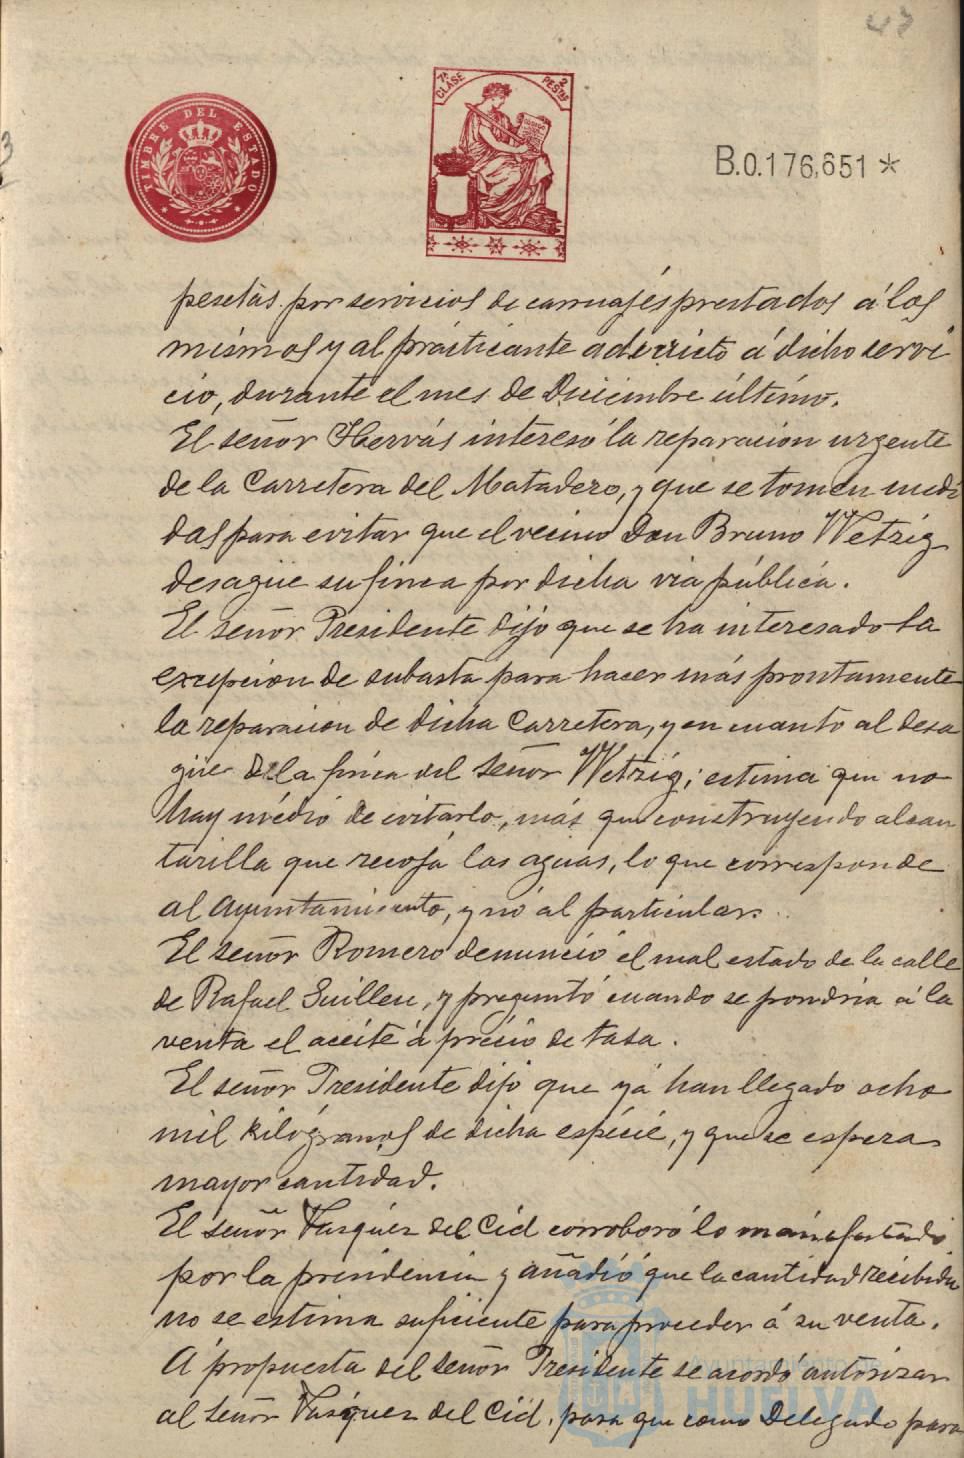 47
TIMBRE DEL ESTADO
7ª CLASE 2 PESTAS
B.0.176,651 *
pesetas por servicios de carruajes prestados á los
mismos y al practicante adscrito á dicho servi
cio, durante el mes de Diciembre último.
El señor Hervás interesó la reparacion urgente
de la Carretera del Matadero, y que se tomen medi
das para evitar que el vecino Don Bruno Wetzig
desagüe su finca por dicha via pública.
El señor Presidente dijo que se ha interesado la
excepcion de subasta para hacer más prontamente
la reparacion de dicha Carretera, y en cuanto al desa
güe de la finca del señor Wetzig; estima que no
hay médio de evitarlo, más que construyendo alcan
tarilla que recoja las aguas, lo que corresponde
al Ayuntamiento, y nó al particular.
El señor Romero denunció el mal estado de la calle
de Rafael Guillen, y preguntó cuando se pondria á la
venta el aceite á précio de tasa.
El señor Presidente dijo que yá han llegado ocho
mil kilógramos de dicha espécie, y que se espera
mayor cantidad.
El señor Vazquez del Cid corroboró lo manifestado
por la presidencia y añadió que la cantidad recibida
no se estima suficiente para proceder á su venta.
Á propuesta del señor Presidente se acordó autorizar
al señor Vazquez del Cid, para que como Delegado para
Ayuntamiento de
HUELVA